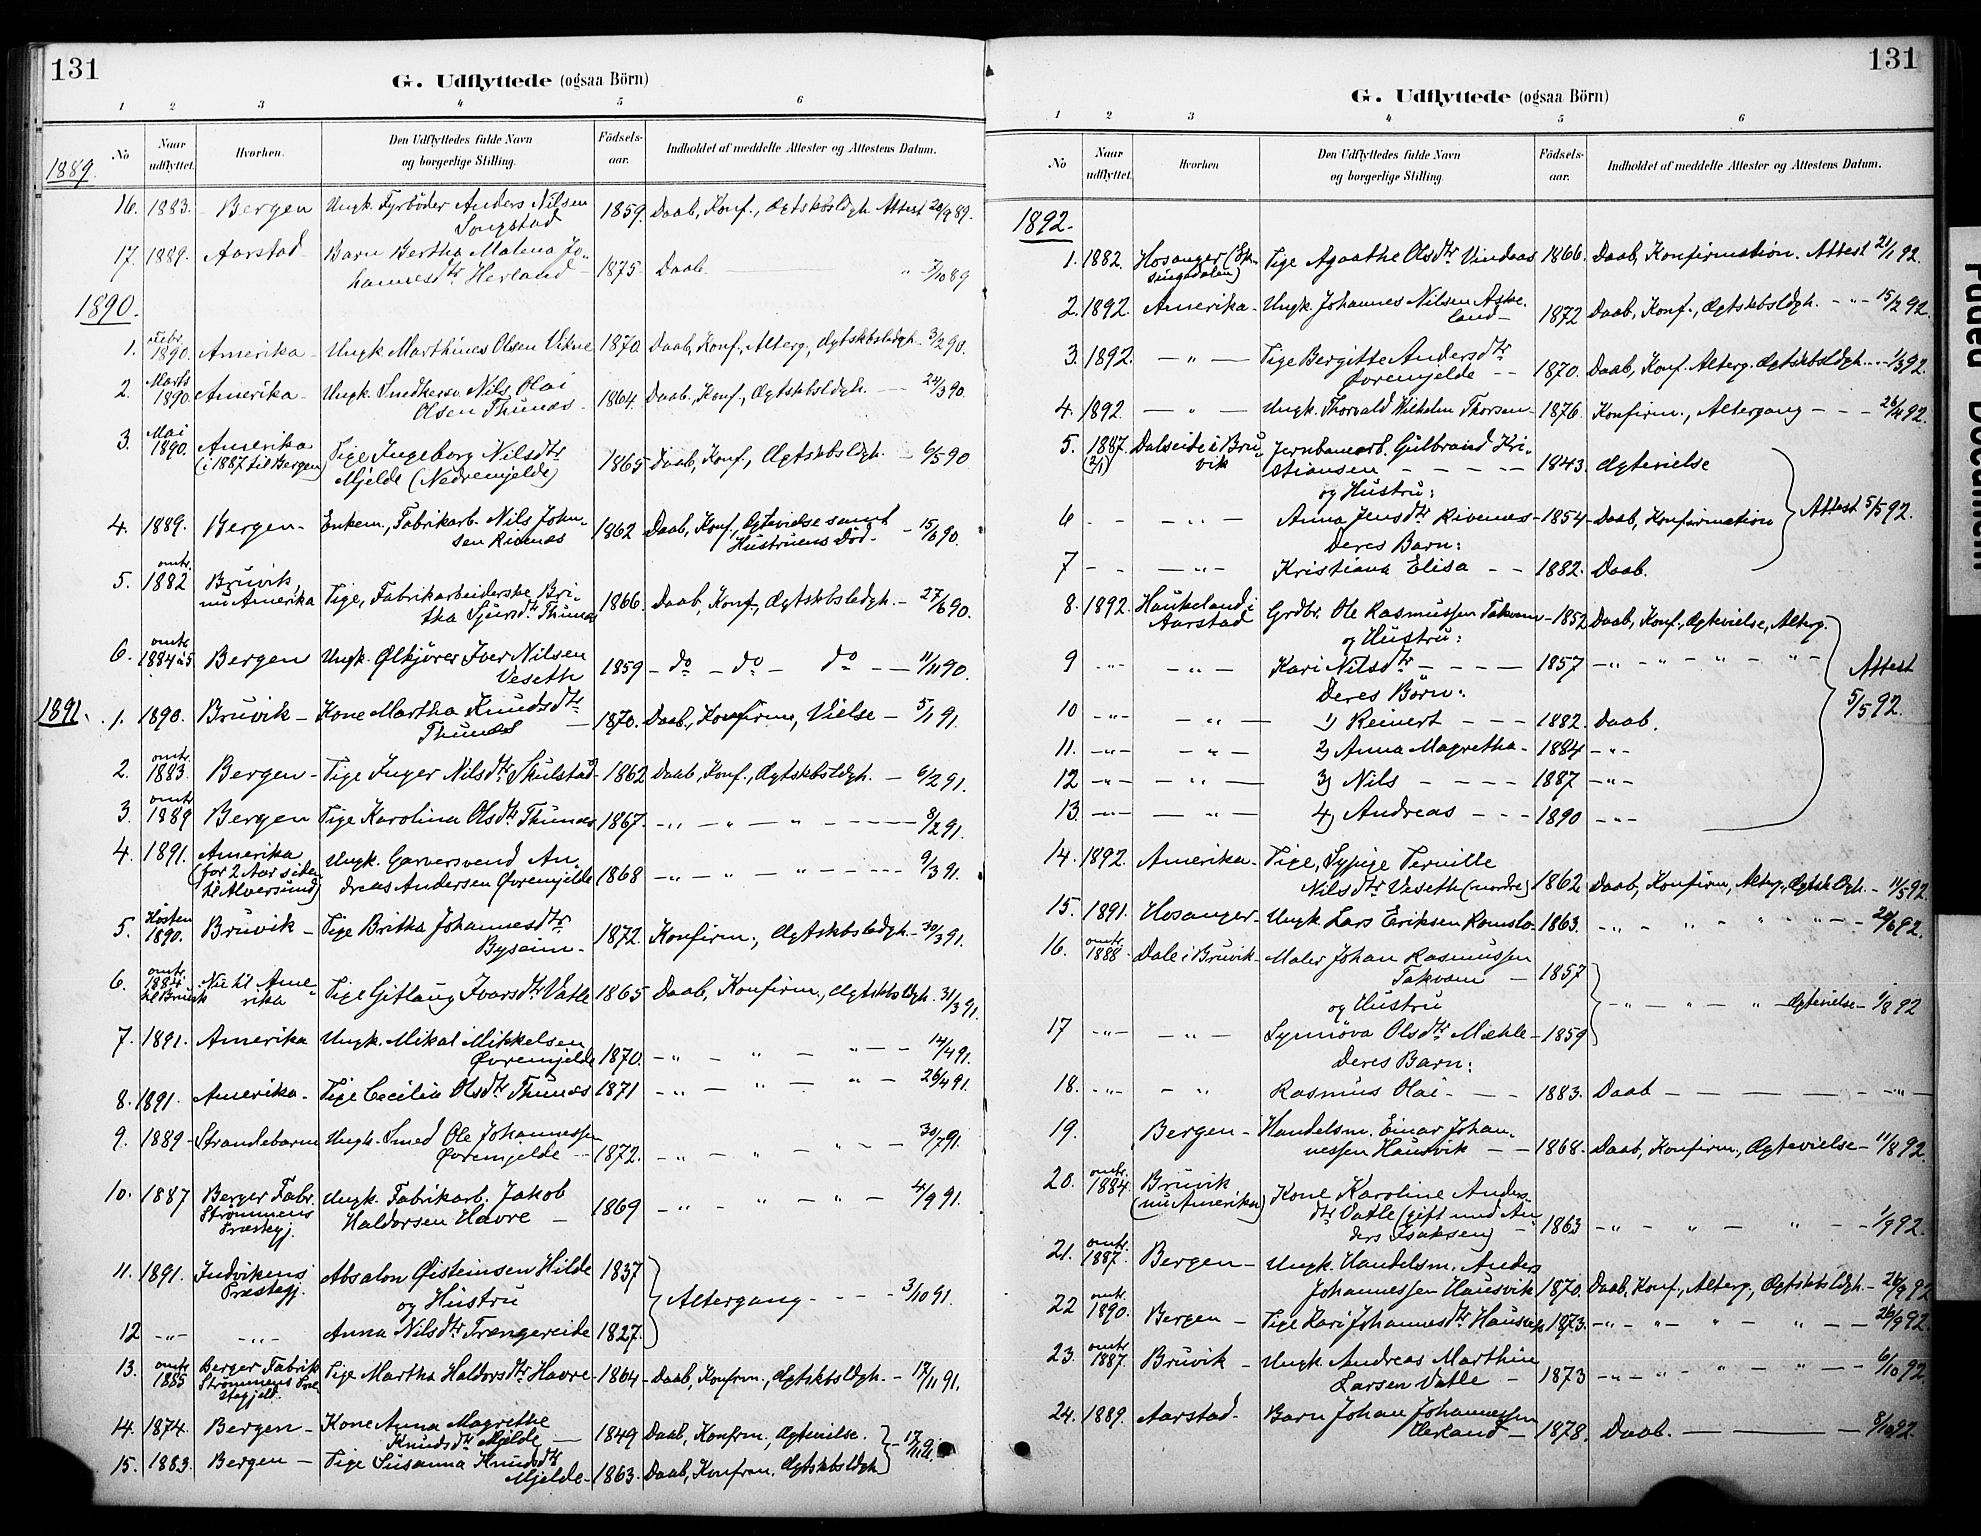 131
G. Udflyttede (ogsaa Börn)
1 2 3 4 5 6
No Naar udflyttet. Hvorhen. Den Udflyttedes fulde Navn og borgerlige Stilling. Födsels-aar. Indholdet af meddelte Attester og Attestens Datum.
1889.
16. 1883. Bergen Ungk. Fyrböder Anders Nilsen
Songstad 1859. Daab, Konf., Ægtskbsldgh. Attest 20/9 89.
17. 1889. Aarstad Barn Bertha Malena Jo-
hannesdtr Herland 1875 Daab - " 7/10 89
1890.
1. Febr. 1890. Amerika - Ungk. Marthines Olsen Vikne 1870. Daab, Konf., Alterg., Ægtskbsledgh. 3/2 90.
2. Marts 1890 Amerika - Ungk. Smedkersv. Nils Olai
Olsen Thunæs - 1864. Daab, Konf., Ægtskbsldgh. - - 24/3 90.
3. Mai 1890. Amerika
(i 1887 til Bergen) Tige Ingeborg Nilsdtr
Mjelde (Nedremjelde) 1865 Daab, Konf., Ægtskbsldgh. - 6/5 90
4. 1889. Bergen - Enkem., Fabrikarb. Nils John-
sen Rivenæs 1862 Daab, Konf., Ægtevielse samt
Hustruens Död - 15/6 90.
5. omtr. 1882 Bruvik,
nu Amerika Tige, Fabrikarbeiderske Bri-
tha Sjursdtr Thunæs 1866. Daab, Konf., Ægtskbsledgh. - 27/6 90.
6. omtr. 1884 à 5 Bergen Ungk. Ølkjörer Iver Nilsen
Veseth 1859 - do - do - do - 11/11 90.
1891.
1. 1890. Bruvik - Kone Martha Knudsdtr
Thunæs - 1870. Daab, Konfirm., Vielse - 5/1 91.
2. omtr. 1883. Bergen - Tige Inger Nilsdtr Skulstad - 1862 Daab, Konf., Ægtskbsldgh. - 6/2 91.
3. omtr. 1889 Bergen Tige Karolina Olsdtr Thunæs 1867. - " - " - " - - - 8/2 91.
4. 1891. Amerika
(for 2 Aar siden
til Alversund) Ungk. Garversvend An-
dreas Andersen Øvremjelde 1868 - " - " - " - - - 9/3 91.
5. Hösten 1890. Bruvik - Tige Britha Johannesdtr
Byseim - 1872. Konfirm., Ægtskbsledgh. - 30/3 91.
6. omtr. 1884 til Bruvik Nu til Ame-
rika Tige Gitlaug Ivarsdtr Vatle 1865 Daab, Konfirm., Ægtskbsldgh. 31/3 91.
7. 1891. Amerika Ungk. Mikal Mikkelsen
Øvremjelde 1870. - " - " - " - - 14/4 91.
8. 1891. Amerika - Tige Cecilia Olsdtr Thunæs 1871 - " - " - " - 26/4 91.
9. 1889 - Strandebarm Ungk. Smed Ole Johannessen
Øvremjelde - 1872. - " - " - " - - 30/7 91.
10. 1887 Berger Fabr.
Strömmens
Præstegj. Ungk. Fabrikarb. Jakob
Haldorsen Havre - 1869 - " - " - " - 4/9 91.
11. 1891. Indvikens
Præstegj. Absalon Øisteinsen Hilde 1837
og Hustru Altergang - - - 3/10 91.
12 - " - - " - Anna Nilsdtr Trængereide 1827.
13. omtr. 1885 Berger Fabrik
Strömmens Præ-
stegjeld. Tige Martha Haldorsdtr Havre - 1864 - Daab, Konfrm., Ægtskbsldgh. - 17/11 91.
14. 1874. Bergen - Kone Anna Magrethe
Knudsdtr Mjelde - 1849 Daab, Konfrm., Ægtevielse.
15. 1883. Bergen - Tige Susanna Knudsdtr
Mjelde - 1863. Daab, Konfrm. Ægtskbsldgh. - 17/11 91.
131
G. Udflyttede (ogsaa Börn)
1 2 3 4 5 6
No Naar udflyttet. Hvorhen Den Udflyttedes fulde Navn og borgerlige Stilling. Födsels-aar. Indholdet af meddelte Attester og Attestens Datum.
1892.
1. 1882. Hosanger (Ek-
singedalen) Tige Agaathe Olsdtr Vindaas 1866. Daab, Konfirmation. Attest 21/1 92.
2. 1892. Amerika - Ungk. Johannes Nilsen Aske-
land - 1872 Daab, Konf., Ægtskbsldgh. - " - 15/2 92.
3. 1892. - " - Tige Bergitte Andersdtr
Øvremjelde - - 1870. Daab, Konf. Alterg. Ægtskbsldgh. - - 1/3 92.
4. 1892 - " - Ungk. Thorvald Wilhelm Thorsen - 1876. Konfirm., Altergang - - - 26/4 92.
5. 1887 (2/1) Dalseide i Bru-
vik Jernbanearb. Gulbrand Kri-
stiansen - - - - 1843. Ægtevielse
og Hustru:
6 - - - " - Anna Jensdtr Rivenæs - 1854 - Daab, Konfirmation Attest 5/5 92.
Deres Barn:
7 - - - " - Kristiana Elisa - - 1882. Daab.
8. 1892. Haukeland i
Aarstad Grdbr. Ole Rasmussen Takvam - 1852 Daab, Konf., Ægtevielse, Alterg.
og Hustru:
9 - " - - " - Kari Nilsdtr - - - - 1857 - " - " - " - " - Attest
Deres Börn: 5/5 92.
10 - " - - " - 1) Reinert - - - 1882. Daab.
11. - " - - " - 2) Anna Magretha - 1884 - " -
12 - " - - " - 3) Nils - - - - 1887 - " -
13. - " - - " - 4) Andreas - - - 1890 - " -
14. 1892. Amerika - Tige, Sypige Pernille
Nilsdtr Veseth (nordre) 1862 Daab, Konfirm., Alterg., Ægtsk.ldgh. - 11/5 92.
15. 1891. Hosanger - Ungk. Lars Eriksen Romslo - 1863. - " - " - " - " - 20/6 92.
16. omtr. 1888 Dale i Bruvik - Maler Johan Rasmussen
Takvam - 1857
og Hustru - " - " - " - Ægtevielse - 1/8 92
17 - " - - " - Synnöva Olsdtr Mæhle - 1859
Deres Barn:
18. - " - - " Rasmus Olai - - - 1883. Daab - - - - - " -
19. Bergen - Handelsm. Einar Johan-
nessen Hausvik - - 1868. Daab, Konfirm., Ægtevielse - 11/8 92.
20. omtr. 1884. Bruvik
(nu Amerika) Kone Karoline Anders-
dtr Vatle (gift med An-
ders Isaksen) - 1863 - " - " - " - " - 1/9 92.
21. omtr. 1887. Bergen - Ungk. Handelsm. Anders
Johannessen Hausvik 1870. Daab, Konf., Alterg., Ægtskbsldgh. - 26/9 92
22 omtr. 1890. Bergen - Tige Kari Johannesdtr Hausvik 1873. - " - " - " - " - 26/9 92.
23. omtr. 1887. Bruvik - Ungk. Andreas Marthin
Larsen Vatle - 1873 - " - " - " - " - 6/10 92.
24. 1889. Aarstad. Barn Johan Johannessen
Herland - 1878. Daab. - - - 8/10 92.